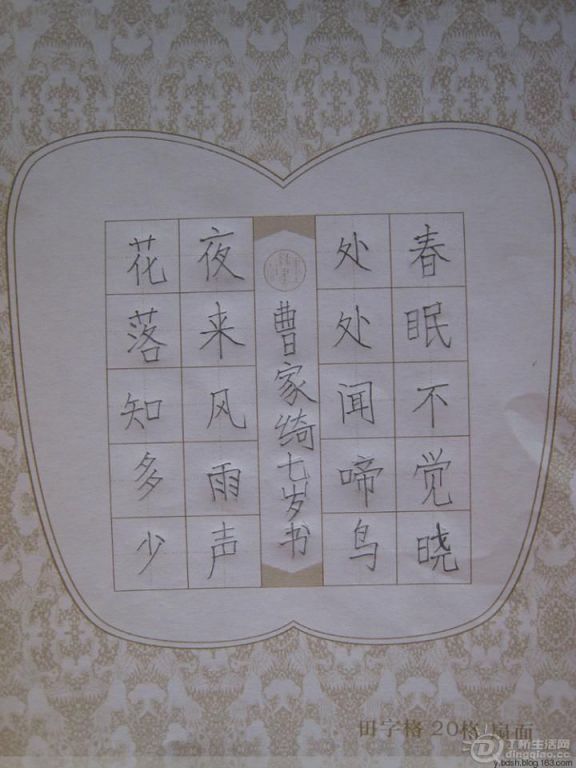 春眠不觉晓
处处闻啼鸟
曹家绮七岁书
夜来风雨声
花落知多少
田字格 20格 扇面
丁桥生活网
dingqiao.cc
y.bdsh.blog.163.com